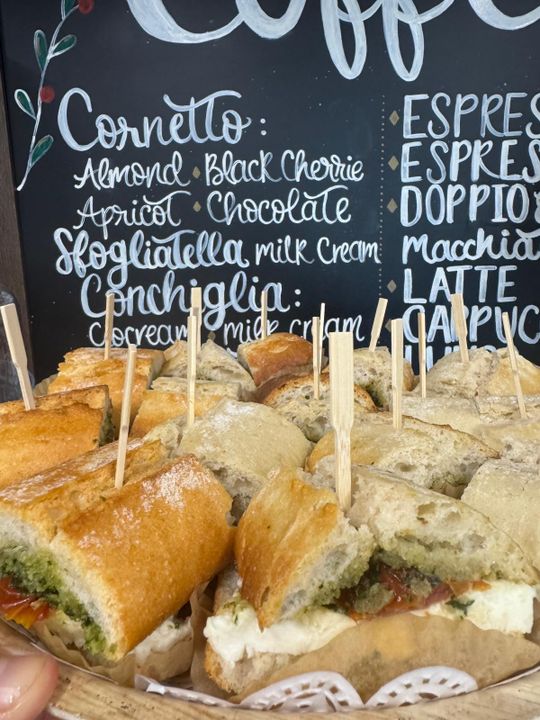 Coffe
Cornetto:
Almond Black Cherrie
Apricot Chocolate
Sfogliatella milk Cream
Conchiglia:
Cocream milk cream
ESPRES
ESPRES
DOPPIO
Macchiat
LATTE
CAPPUC